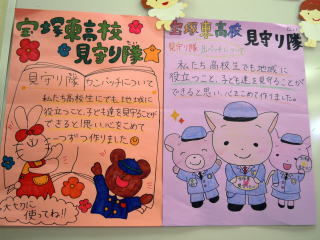 宝塚東高校
見守り隊
見守り隊 ワンバッチについて
私たち高校生にでも地域に
役立つこと、子ども達を見守ることが
できると!思い、心をこめて
一つずつ作りました
大切に
使ってね!!
宝塚東高校
見守り隊
見守り隊 缶バッチについて
私たち高校生でも地域に
役立つこと、子ども達を見守ることが
できると思い、心をこめて作りました。